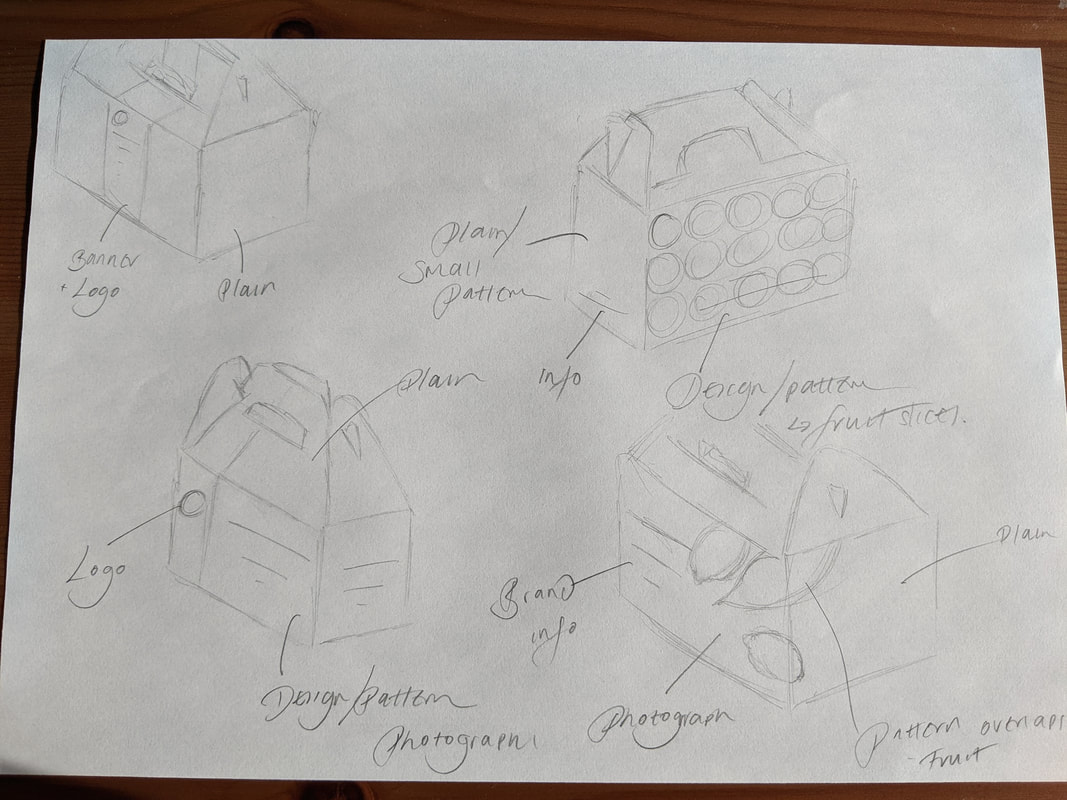 Banner
+ Logo
Plain
Plain/
Small
pattern
info
Design/pattern
↳ fruit slices.
Plain
Logo
Design/pattern
Photograph
Brand
info
Photograph
Plain
Pattern overlaps
- Fruit